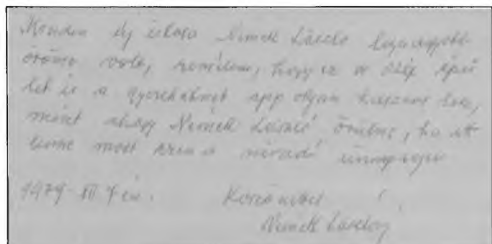 Minden új iskola Németh László legnagyobb
öröme volt, remélem, hogy ez a szép épü
let is a gyerekeknek épp olyan hasznos lesz,
mint ahogy Németh László örülne, ha itt
lenne most ezen a névadó ünnepségen
1979. XII. 7-én.
Németh Lászlóné